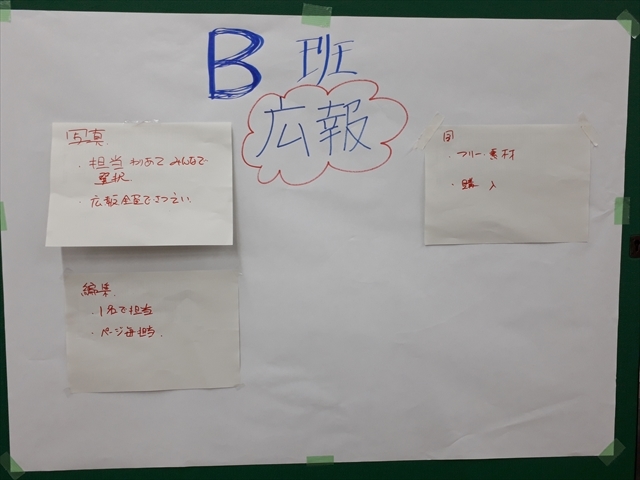 B 班
広報
写真
・担当わりあて みんなで
選択
・広報全員でさつえい
編集
・1名で担当
・ページ毎担当
・フリー素材
・購入